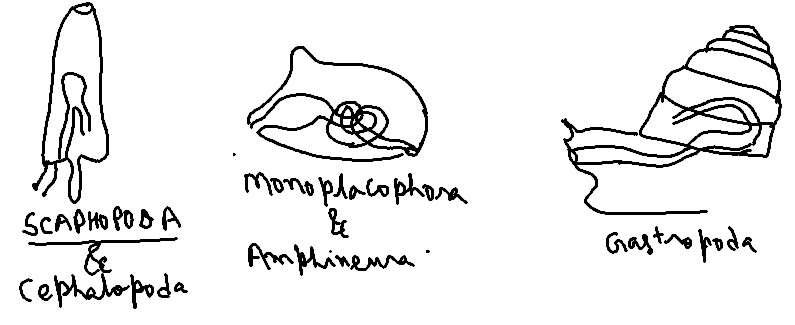 SCAPHOPODA
&
Cephalopoda
Monoplacophora
&
Amphineura.
Gastropoda